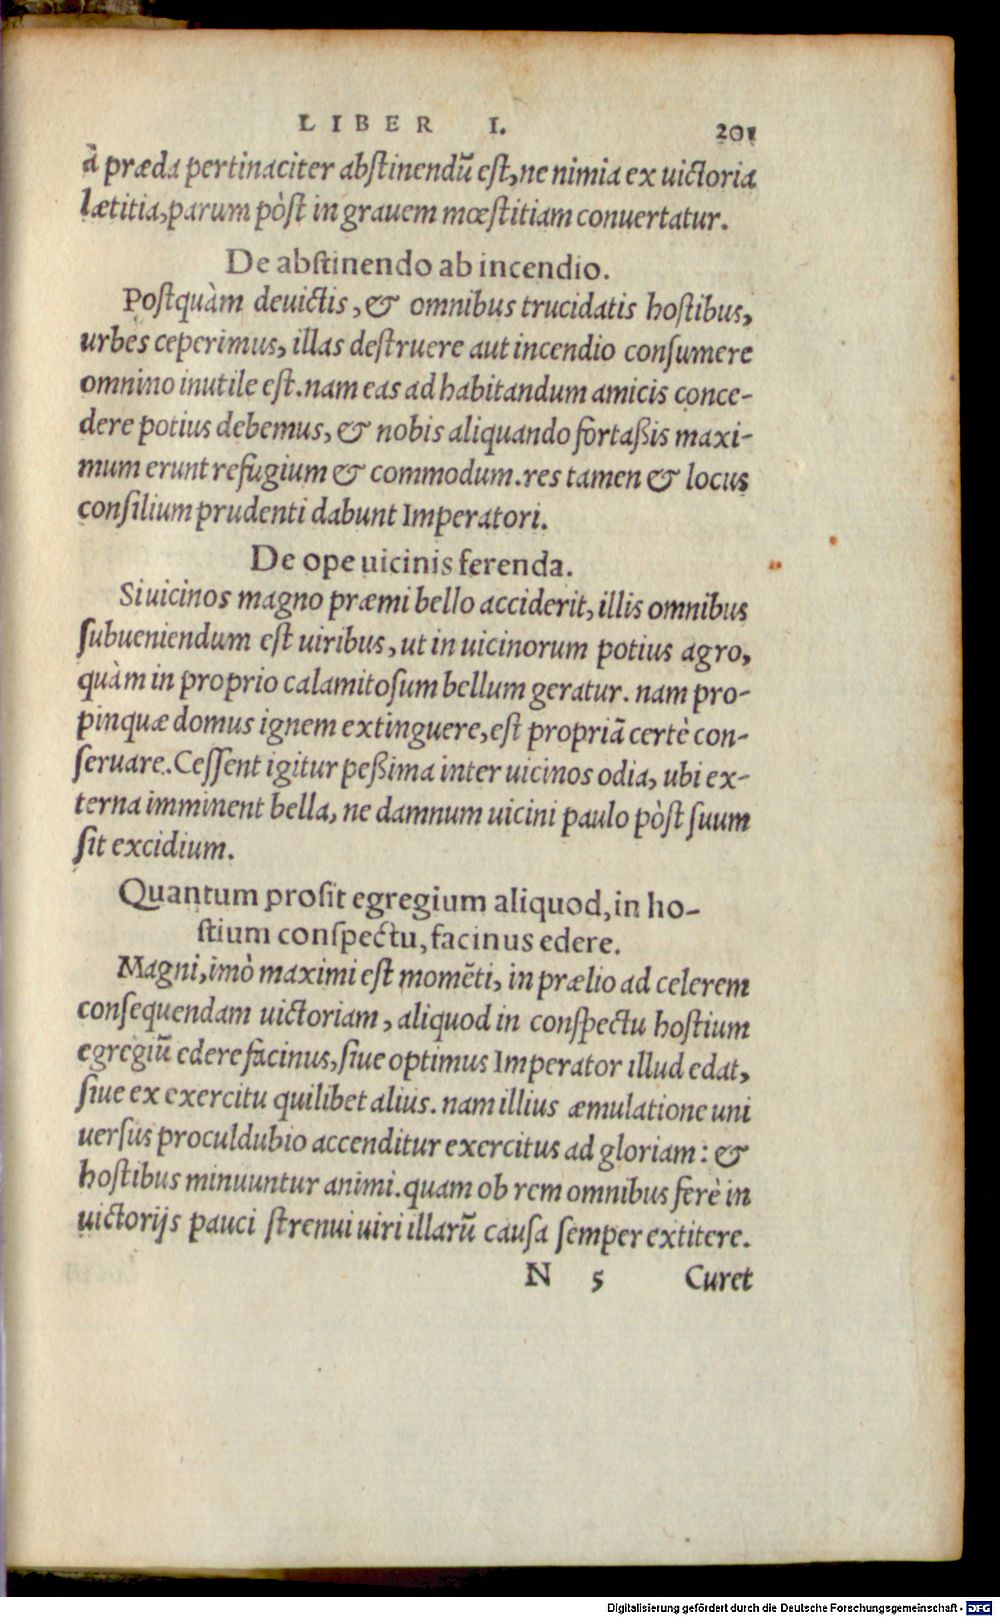 LIBER I. 201
à præda pertinaciter abstinendũ est, ne nimia ex uictoria
lætitia, parum pòst in grauem mœstitiam conuertatur.
De abstinendo ab incendio.
Postquàm deuictis, & omnibus trucidatis hostibus,
urbes ceperimus, illas destruere aut incendio consumere
omnino inutile est. nam eas ad habitandum amicis conce-
dere potius debemus, & nobis aliquando fortaßis maxi-
mum erunt refugium & commodum. res tamen & locus
consilium prudenti dabunt Imperatori.
De ope uicinis ferenda.
Si uicinos magno præmi bello acciderit, illis omnibus
subueniendum est uiribus, ut in uicinorum potius agro,
quàm in proprio calamitosum bellum geratur. nam pro-
pinquæ domus ignem extinguere, est propriã certè con-
seruare. Cessent igitur peßima inter uicinos odia, ubi ex-
terna imminent bella, ne damnum uicini paulo pòst suum
sit excidium.
Quantum prosit egregium aliquod, in ho-
stium conspectu, facinus edere.
Magni, imò maximi est momẽti, in prælio ad celerem
consequendam uictoriam, aliquod in conspectu hostium
egregiũ edere facinus, siue optimus Imperator illud edat,
siue ex exercitu quilibet alius. nam illius æmulatione uni
uersus proculdubio accenditur exercitus ad gloriam: &
hostibus minuuntur animi. quam ob rem omnibus ferè in
uictorijs pauci strenui uiri illarũ causa semper extitere.
N 5 Curet
Digitalisierung gefördert durch die Deutsche Forschungsgemeinschaft - DFG